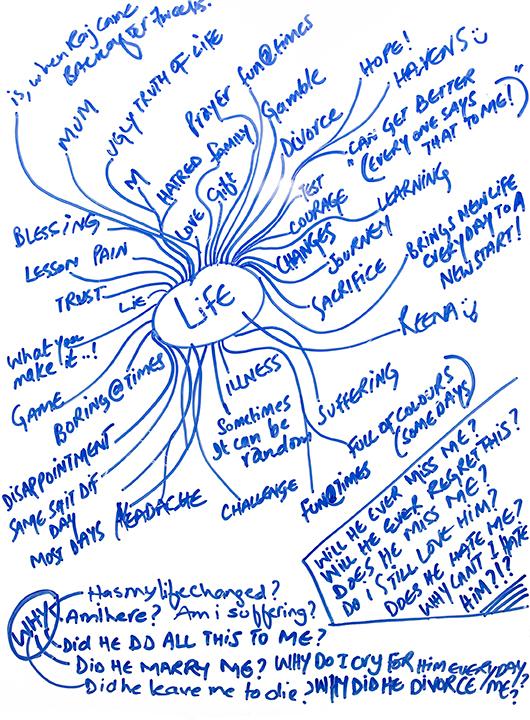 is, when Raj came
BACK after 7 weeks.
MUM
UGLY TRUTH OF LIFE
M
HATRED
Prayer
family
fun@times
Gamble
Divorce
HOPE!
HAVENS
"CAN GET BETTER
(EVERYONE SAYS
THAT TO ME!)"
LOVE
Gift
TEST
COURAGE
LEARNING
CHANGES
JOURNEY
SACRIFICE
BRINGS NEW LIFE
EVERYDAY TO A
NEW START!
REENA
BLESSING
LESSON PAIN
TRUST
LIE
LIFE
What you
make it..!
GAME
BORING@TIMES
DISAPPOINTMENT
SAME SHIT DIF
DAY
MOST DAYS
HEADACHE
ILLNESS
Sometimes
It can be
random
CHALLENGE
SUFFERING
FULL OF COLOURS
(SOME DAYS)
FUN@TIMES
WILL HE EVER MISS ME?
WILL HE EVER REGRET THIS?
DOES HE MISS ME?
DO I STILL LOVE HIM?
DOES HE HATE ME?
WHY CAN'T I HATE
HIM?!?
WHY
Has my life changed?
Am i here? Am i suffering?
Did HE DO ALL THIS TO ME?
DID HE MARRY ME? WHY DO I CRY FOR HIM EVERYDAY?
Did he leave me to die? WHY DID HE DIVORCE ME?